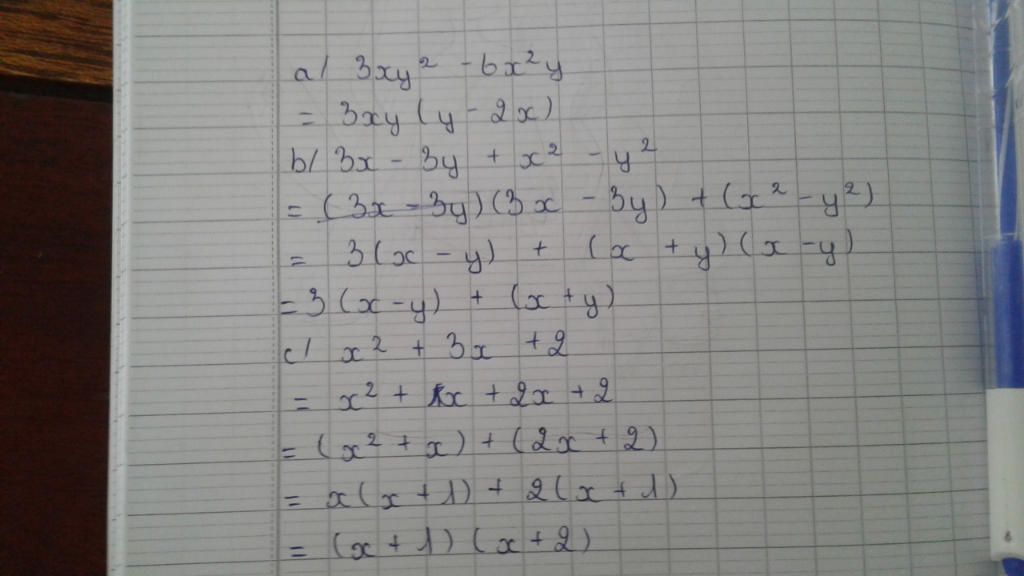 a/ 3xy² - 6x²y
= 3xy (y - 2x)
b/ 3x - 3y + x² - y²
= (3x - 3y)(3x - 3y) + (x² - y²)
= 3(x - y) + (x + y)(x - y)
= 3(x - y) + (x + y)
c/ x² + 3x + 2
= x² + 1x + 2x + 2
= (x² + x) + (2x + 2)
= x(x + 1) + 2(x + 1)
= (x + 1)(x + 2)